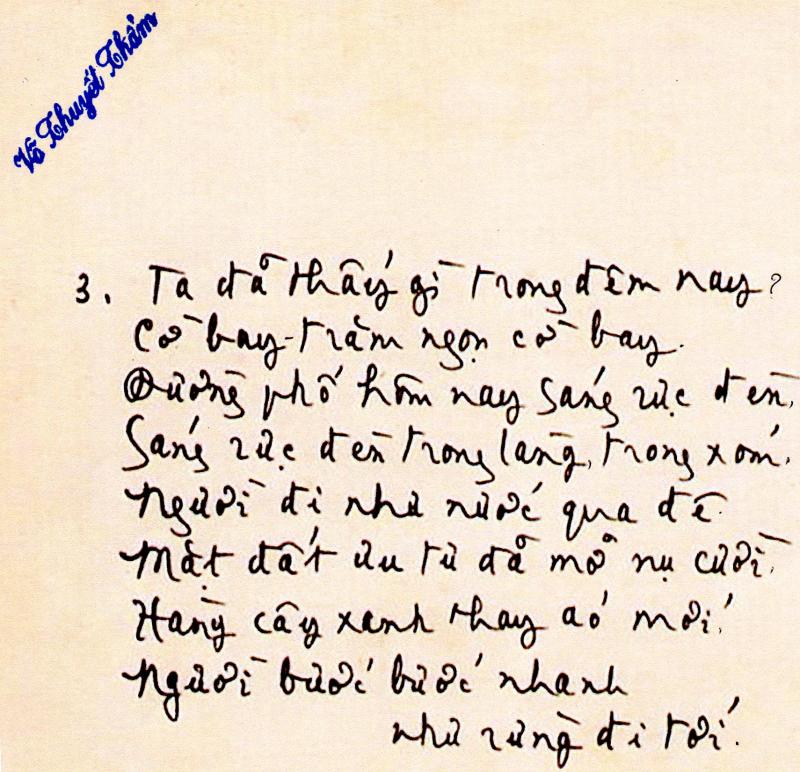 Võ Thuyết Thẩm
3. Ta đã thấy gì trong đêm nay?
Cờ bay - trăm ngọn cờ bay.
Đường phố hôm nay sáng rực đèn,
Sáng rực đèn trong làng, trong xóm.
Người đi như nước qua đê
Mặt đất ưu tư đã mở nụ cười.
Hàng cây xanh thay áo mới.
Người bước bước nhanh
như rừng đi tới.